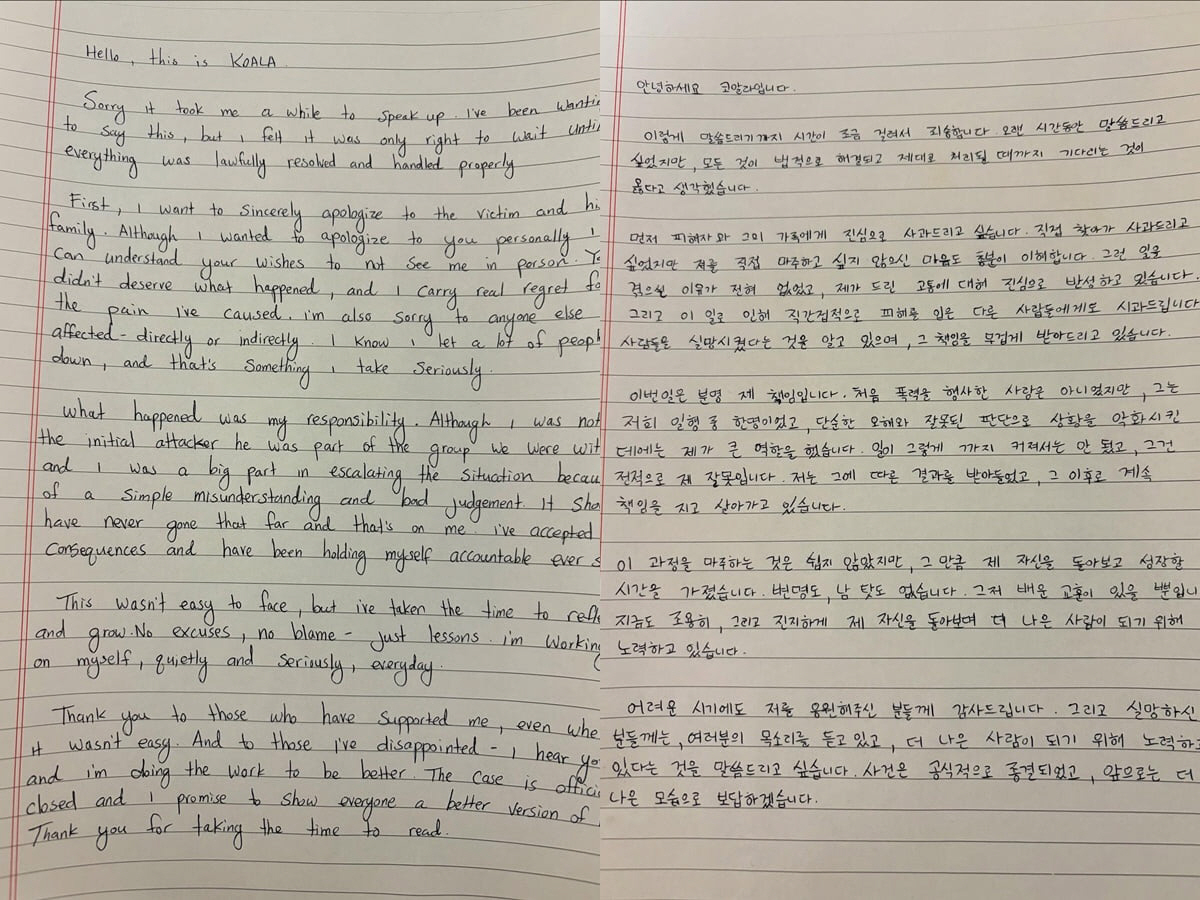 Hello, this is KOALA.
Sorry it took me a while to speak up. I've been wanti
to say this, but I felt it was only right to wait unti
everything was lawfully resolved and handled properly
First, I want to sincerely apologize to the victim and hi
family. Although I wanted to apologize to you personally I
can understand your wishes to not see me in person. Yo
didn't deserve what happened, and I carry real regret fo
the pain I've caused. i'm also sorry to anyone else
affected - directly or indirectly. I know I let a lot of peop
down, and that's something I take seriously.
what happened was my responsibility. Although I was not
the initial attacker he was part of the group we were wit
and I was a big part in escalating the situation becau
of a simple misunderstanding and bad judgement. It sho
have never gone that far and that's on me. i've accepted
consequences and have been holding myself accountable ever s
This wasn't easy to face, but i've taken the time to refl
and grow. No excuses, no blame - just lessons. i'm working
on myself, quietly and seriously, everyday.
Thank you to those who have supported me, even whe
it wasn't easy. And to those I've disappointed - I hear yo
and i'm doing the work to be better. The case is offici
closed and I promise to show everyone a better version of
Thank you for taking the time to read.
안녕하세요 코알라입니다.
이렇게 말씀드리기까지 시간이 조금 걸려서 죄송합니다. 오랜 시간동안 말씀드리고
싶었지만, 모든 것이 법적으로 해결되고 제대로 처리될 때까지 기다리는 것이
옳다고 생각했습니다.
먼저 피해자와 그의 가족에게 진심으로 사과드리고 싶습니다. 직접 찾아가 사과드리고
싶었지만 저를 직접 마주하고 싶지 않으신 마음도 충분이 이해합니다. 그런 일을
겪으실 이유가 전혀 없었고, 제가 드린 고통에 대해 진심으로 반성하고 있습니다.
그리고 이 일로 인해 직간접적으로 피해를 입은 다른 사람들에게도 사과드립니다
사람들을 실망시켰다는 것을 알고 있으며, 그 책임을 무겁게 받아드리고 있습니다.
이번일은 분명 제 책임입니다. 처음 폭력을 행사한 사람은 아니었지만, 그는
저희 일행 중 한명이었고, 단순한 오해와 잘못된 판단으로 상황을 악화시킨
데에는 제가 큰 역할을 했습니다. 일이 그렇게 까지 커져서는 안 됐고, 그건
전적으로 제 잘못입니다. 저는 그에 따른 결과를 받아들였고, 그 이후로 계속
책임을 지고 살아가고 있습니다.
이 과정을 마주하는 것은 쉽지 않았지만, 그 만큼 제 자신을 돌아보고 성장할
시간을 가졌습니다. 변명도, 남 탓도 없습니다. 그저 배운 교훈이 있을 뿐입니
지금도 조용히, 그리고 진지하게 제 자신을 돌아보며 더 나은 사람이 되기 위해
노력하고 있습니다.
어려운 시기에도 저를 응원해주신 분들께 감사드립니다. 그리고 실망하신
분들께는, 여러분의 목소리를 듣고 있고, 더 나은 사람이 되기 위해 노력하고
있다는 것을 말씀드리고 싶습니다. 사건은 공식적으로 종결되었고, 앞으로는 더
나은 모습으로 보답하겠습니다.